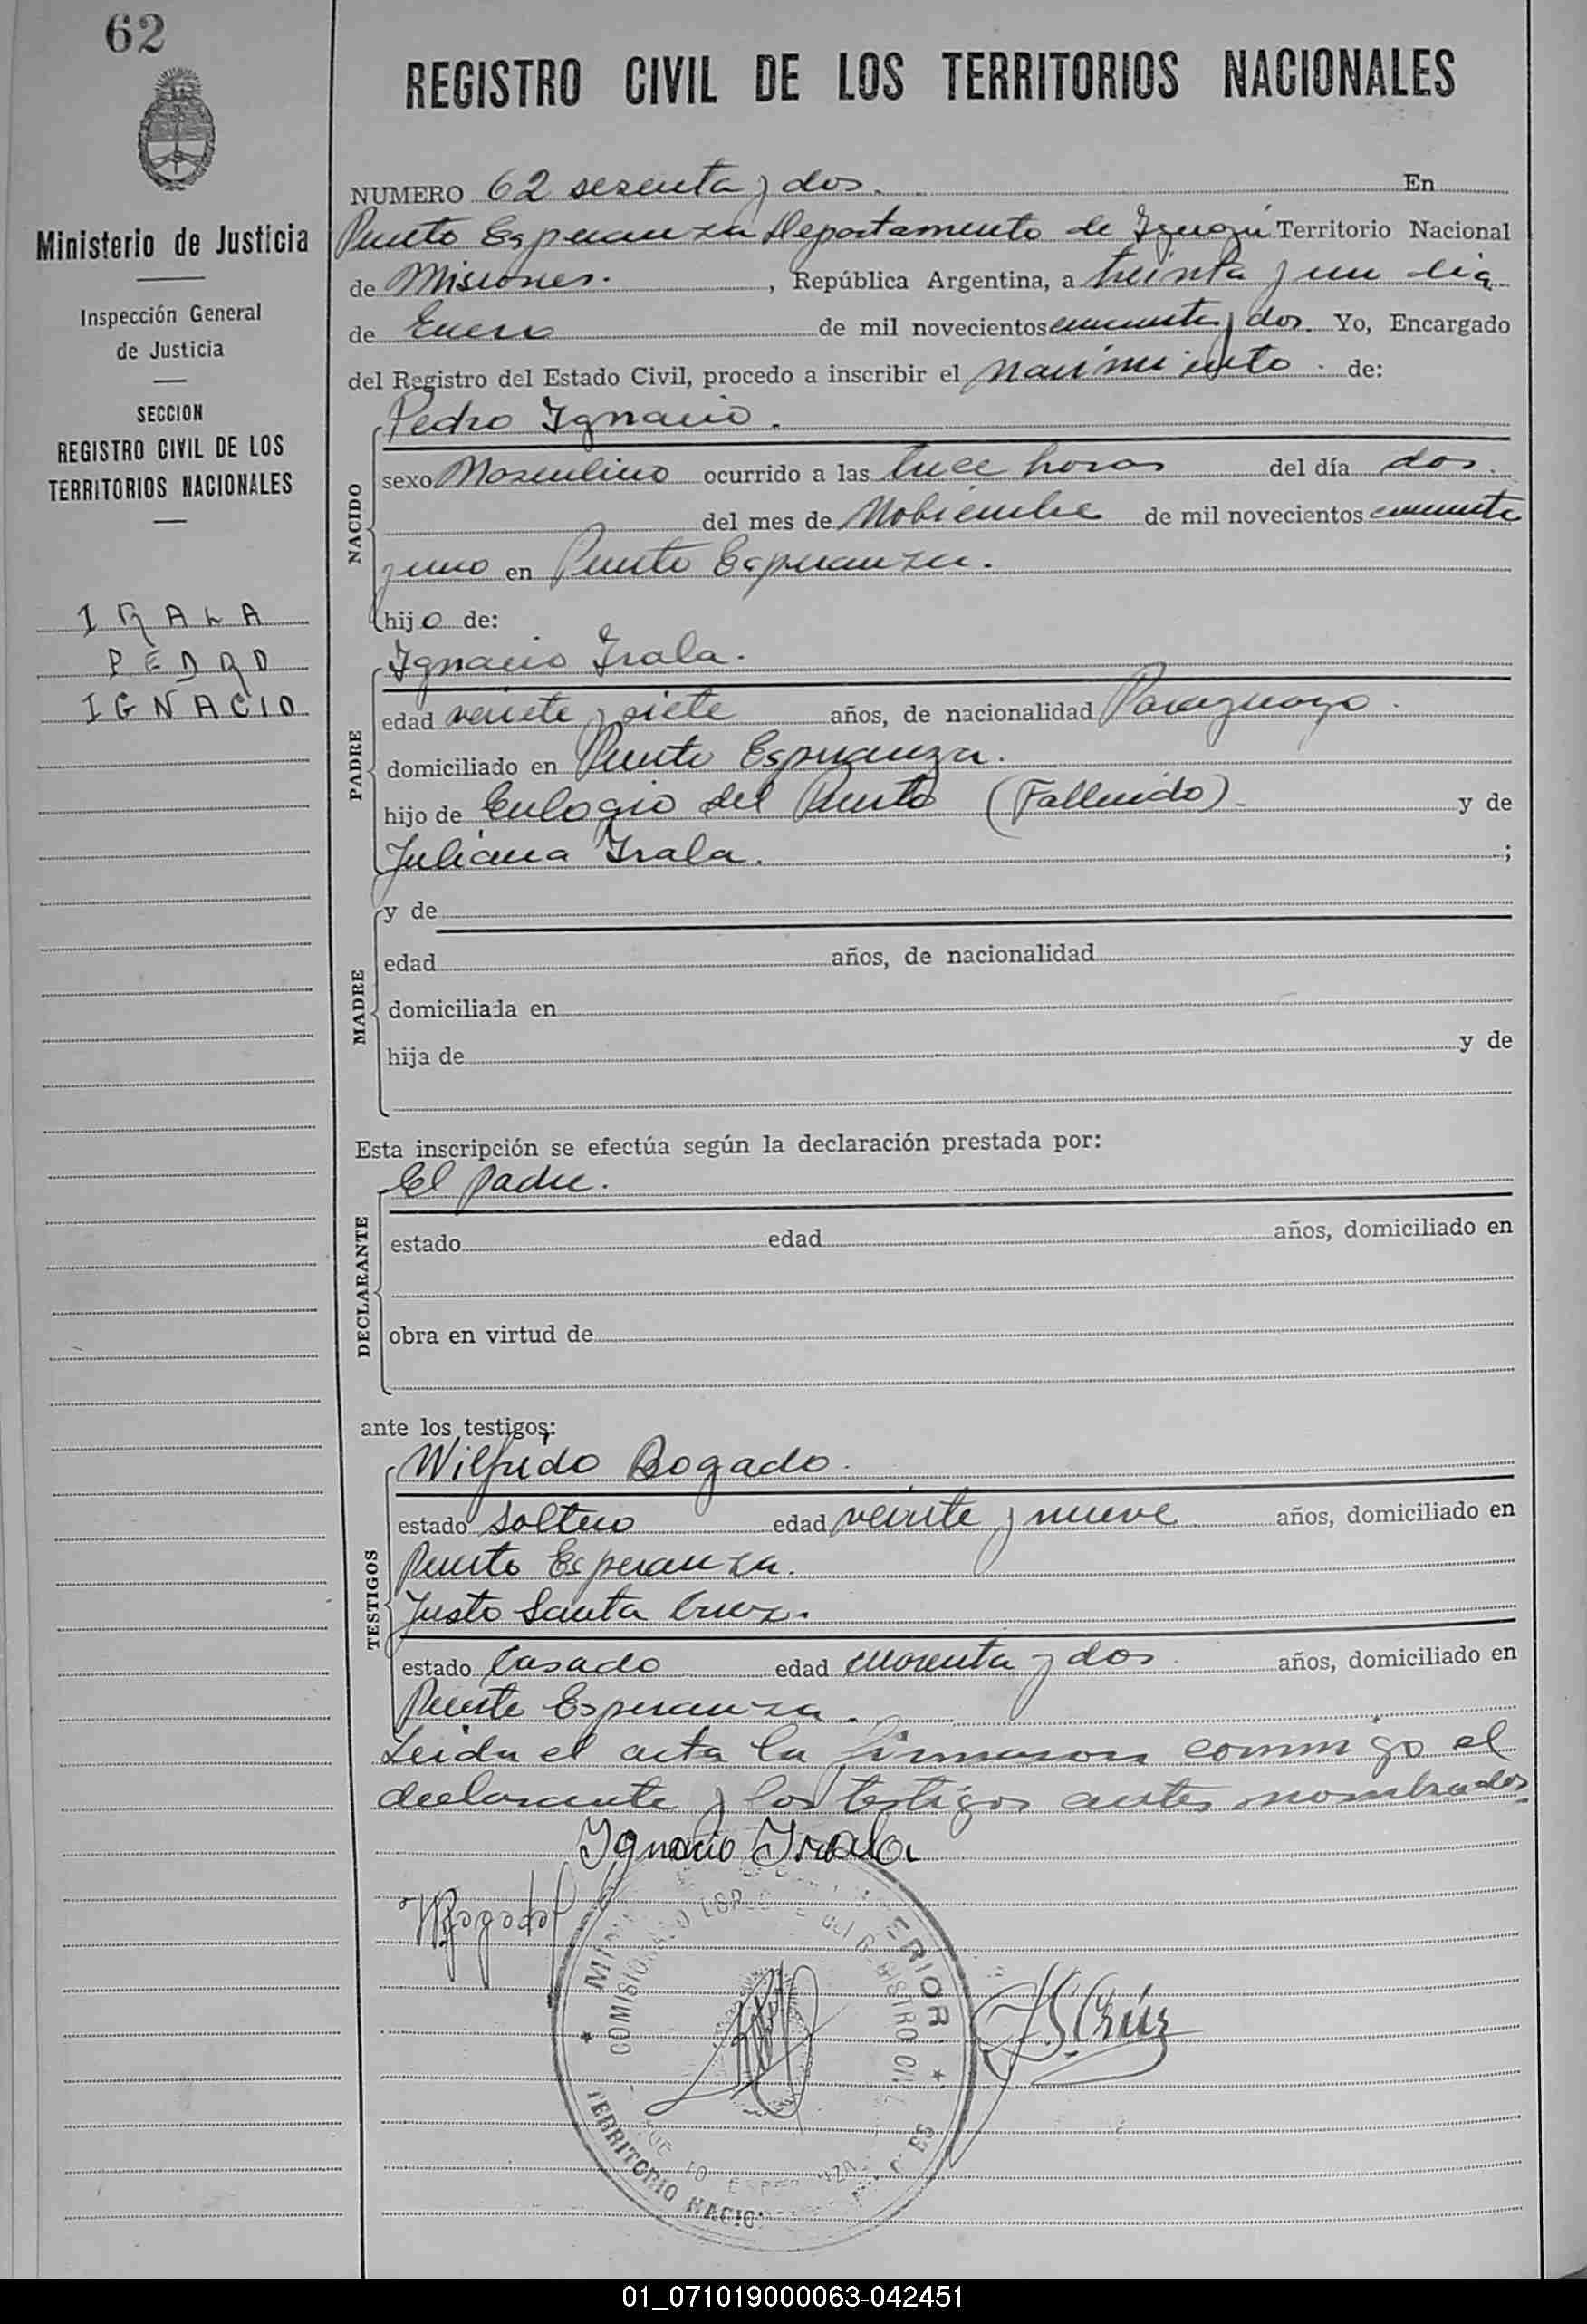 62
Ministerio de Justicia
Inspección General
de Justicia
SECCION
REGISTRO CIVIL DE LOS
TERRITORIOS NACIONALES
IRALA
PEDRO
IGNACIO
REGISTRO CIVIL DE LOS TERRITORIOS NACIONALES
NUMERO 62 sesenta y dos. En
Puerto Esperanza Departamento de Iguazú Territorio Nacional
de Misiones. , República Argentina, a treinta y un dia
de Enero de mil novecientos cincuenta y dos. Yo, Encargado
del Registro del Estado Civil, procedo a inscribir el nacimiento. de:
Pedro Ignacio.
NACIDO
sexo Masculino ocurrido a las trece horas del día dos.
del mes de Nobiembre de mil novecientos cincuenta
y uno en Puerto Esperanza.
hijo de:
Ignacio Irala.
PADRE
edad veinte y siete años, de nacionalidad Paraguayo.
domiciliado en Puerto Esperanza.
hijo de Eulogio del Puerto (Fallecido) y de
Juliana Irala. ;
MADRE
y de
edad años, de nacionalidad
domiciliada en
hija de y de
Esta inscripción se efectúa según la declaración prestada por:
El padre.
DECLARANTE
estado edad años, domiciliado en
obra en virtud de
ante los testigos:
Wilfrido Bogado.
TESTIGOS
estado Soltero edad veinte y nueve años, domiciliado en
Puerto Esperanza.
Justo Santa Cruz.
estado Casado edad cuarenta y dos. años, domiciliado en
Puerto Esperanza.
Leida el acta la firmaron conmigo el
declarante y los testigos antes nombrados.
Ignacio Irala
J.S.Crúz
TERRITORIO
01_071019000063-042451